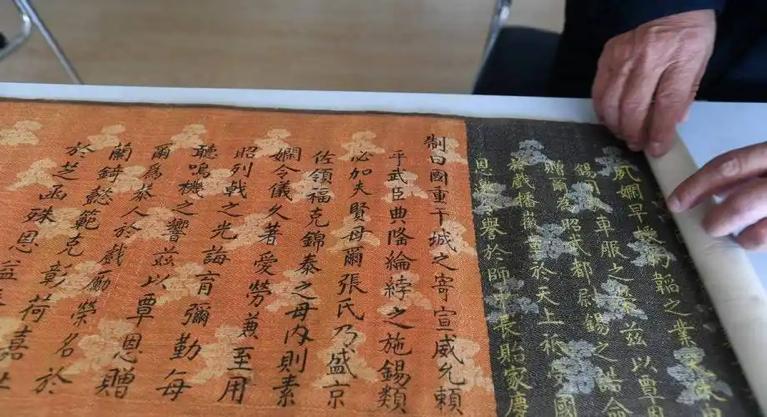 嫻早韜之業
車服之榮茲以覃
贈爾為昭武都尉錫之誥命
戲幡於天上祗
恩譽於師中長貽家慶
制曰國重干城之寄宣威允賴
乎武臣典隆綸綍之施錫類
必加夫賢母爾張氏乃盛京
佐領福克錦泰之母內則素
嫻令儀久著愛勞兼至用
昭列戟之光誨育彌勤每
聽鳴機之響茲以覃恩贈
爾為恭人於戲勵榮名於
蘭錡懿範克彰荷
於芝函殊恩益嘉祉